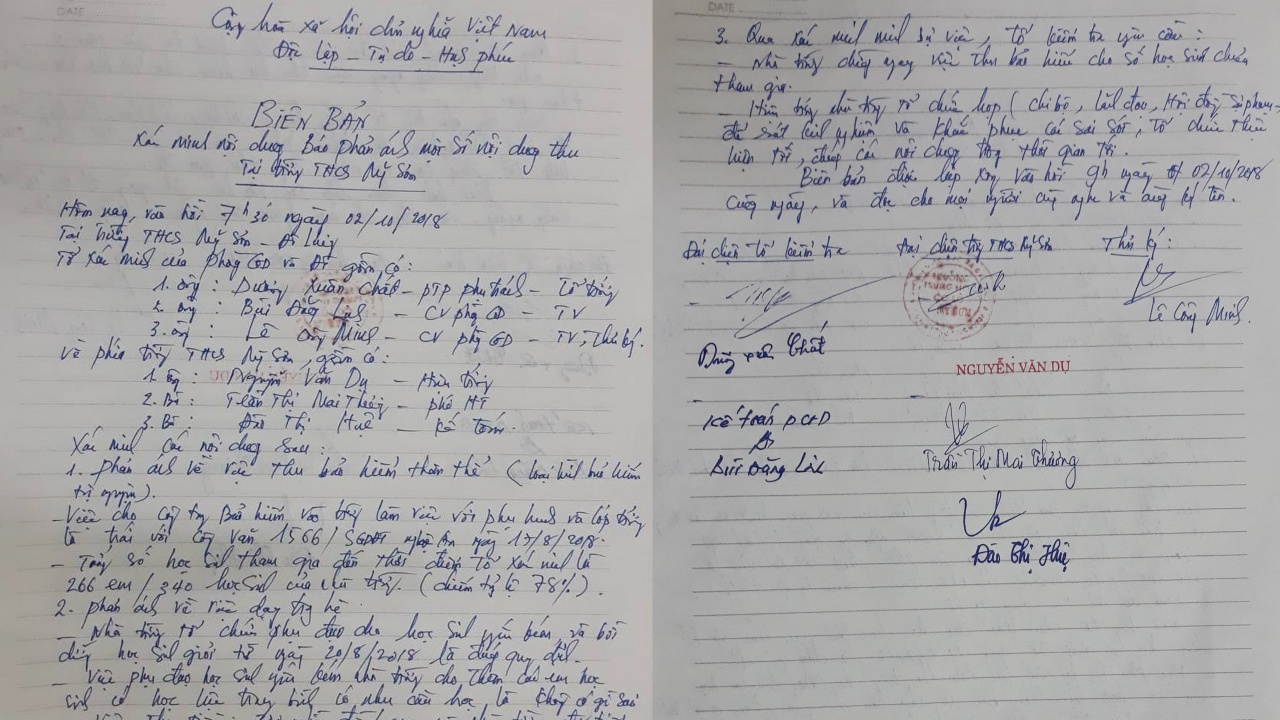 DATE
Cộng hòa xã hội chủ nghĩa Việt Nam
Độc lập - Tự do - Hạnh phúc
BIÊN BẢN
Xác minh nội dung Báo phản ánh một số nội dung thu
Tại trường THCS Mỹ Sơn
Hôm nay, vào hồi 7h30 ngày 02/10/2018
Tại trường THCS Mỹ Sơn - Đô Lương
Tổ xác minh của phòng GD và ĐT gồm có:
1. ông: Dương Xuân Chất - PTP phụ trách - Tổ trưởng
2. ông: Bùi Đăng Linh - CV phòng GD - TV
3. ông: Lê Công Minh - CV phòng GD - TV, Thư ký.
Về phía trường THCS Mỹ Sơn, gồm có:
1. ông: Nguyễn Văn Dụ - Hiệu trưởng
2. Bà: Trần Thị Mai Thương - phó HT
3. Bà: Đào Thị Huệ - Kế toán.
Xác minh các nội dung sau:
1. phản ánh về việc thu bảo hiểm thân thể (loại hình bảo hiểm
tự nguyện).
- Việc cho công ty Bảo hiểm vào trường làm việc với phụ huynh và lớp trưởng
là trái với công văn 1566/SGDĐT Nghệ An ngày 17/8/2018.
- Tổng số học sinh tham gia đến thời điểm Tổ xác minh là
266 em/340 học sinh của nhà trường. (chiếm tỷ lệ 78%).
2. phản ánh về việc dạy trong hè
- Nhà trường tổ chức phụ đạo cho học sinh yếu kém và bồi
dưỡng học sinh giỏi từ ngày 20/8/2018 là đúng quy định.
- Việc phụ đạo học sinh yếu kém nhà trường cho thêm các em học
sinh có học lực trung bình có nhu cầu học là không có gì sai
DATE
3. Qua xác minh sự việc, Tổ kiểm tra yêu cầu:
- Nhà trường dừng ngay việc thu bảo hiểm cho số học sinh chưa
tham gia.
- Hiệu trưởng nhà trường tổ chức họp (chi bộ, lãnh đạo, Hội đồng Sư phạm,
để rút kinh nghiệm và khắc phục các sai sót, tổ chức thực
hiện tốt, đúng các nội dung trong thời gian tới.
Biên bản được lập xong vào hồi 9h ngày 02/10/2018
Cùng ngày, và đọc cho mọi người cùng nghe và cùng ký tên.
Đại diện Tổ kiểm tra Đại diện trường THCS Mỹ Sơn Thư ký:
Lê Công Minh.
Dương Xuân Chất
NGUYỄN VĂN DỤ
Kế toán PGD
Bùi Đăng Linh
Trần Thị Mai Thương
Đào Thị Huệ